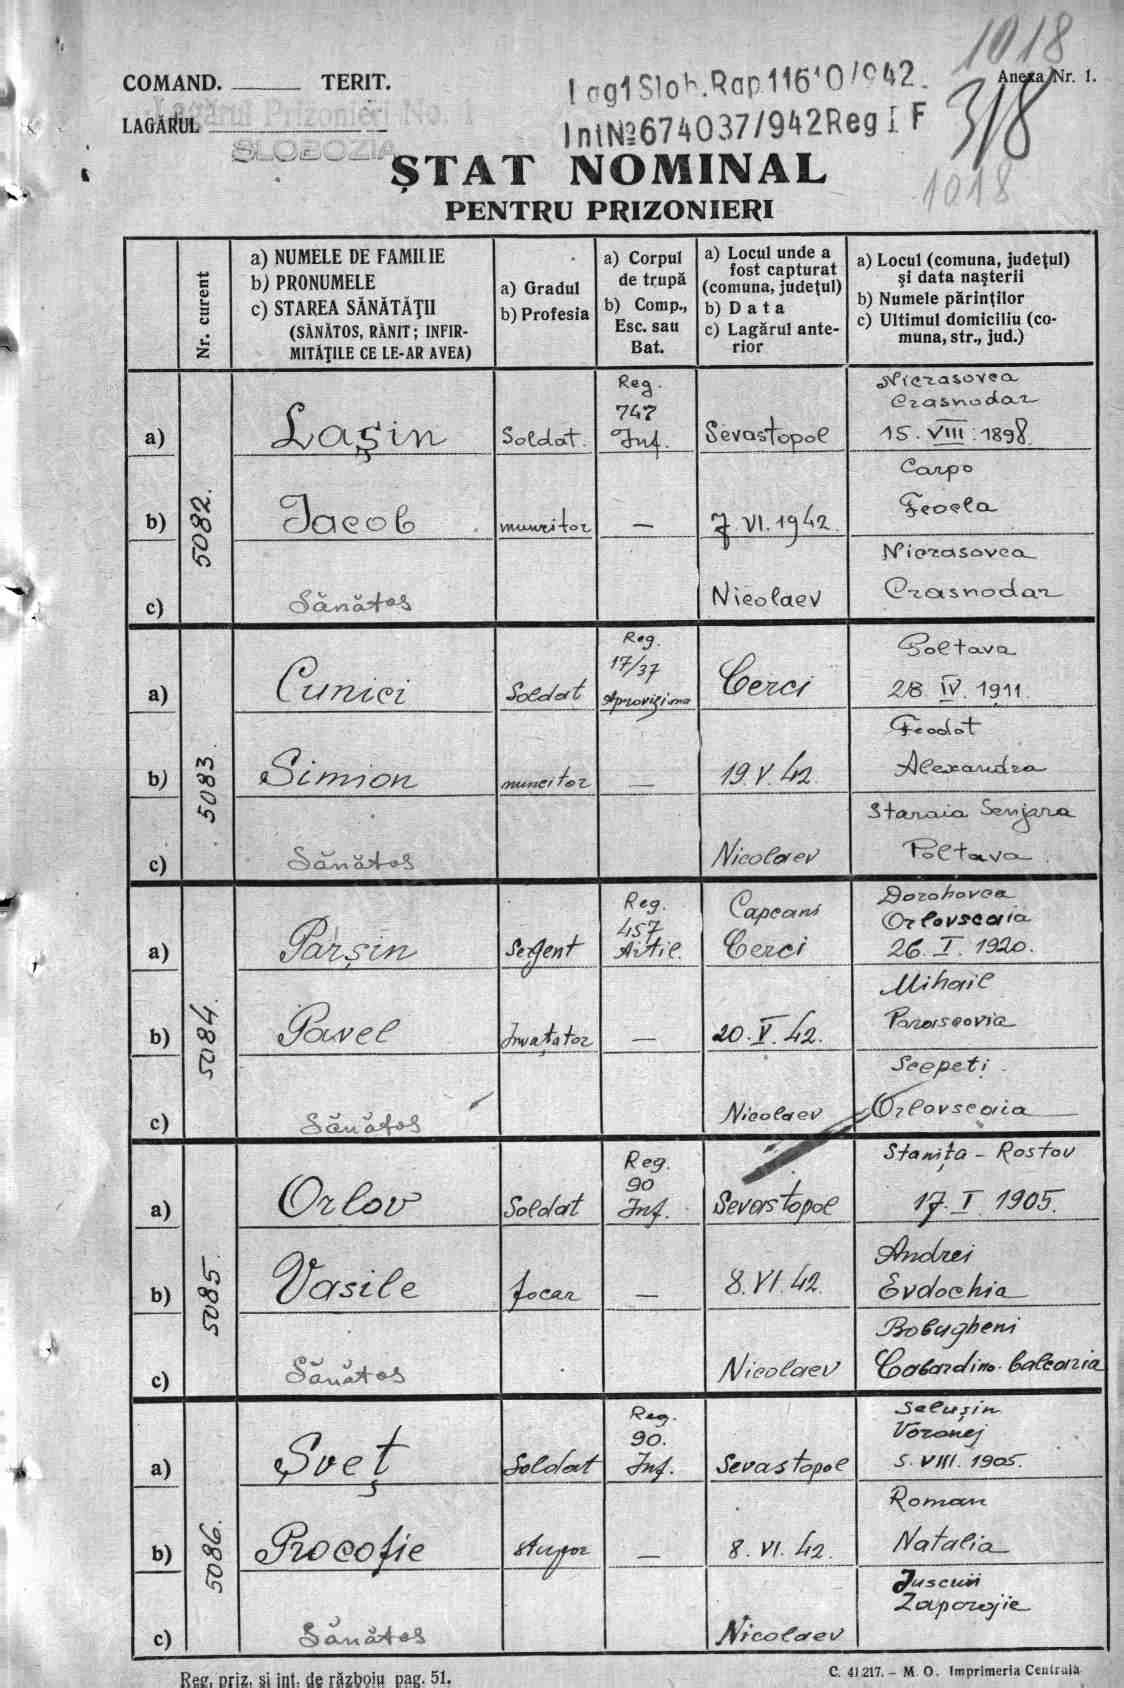 1018
COMAND. TERIT.
Lag1 Slob. Rap.11610/942.
Anexa Nr. 1.
LAGĂRUL Lagărul Prizonieri No. 1
SLOBOZIA
Int№674037/942 Reg I F
318
1018
ȘTAT NOMINAL
PENTRU PRIZONIERI
Nr. curent
a) NUMELE DE FAMILIE
b) PRONUMELE
c) STAREA SĂNĂTĂŢII
(SĂNĂTOS, RĂNIT; INFIR-
MITĂŢILE CE LE-AR AVEA)
a) Gradul
b) Profesia
a) Corpul
de trupă
b) Comp.,
Esc. sau
Bat.
a) Locul unde a
fost capturat
(comuna, judeţul)
b) Data
c) Lagărul ante-
rior
a) Locul (comuna, judeţul)
şi data naşterii
b) Numele părinţilor
c) Ultimul domiciliu (co-
muna, str., jud.)
5082.
a) Lașin
Soldat.
Reg.
747
Inf.
Sevastopol
Nicrasovca
Crasnodar
15. VIII. 1898.
b) Iacob
muncitor
—
7. VI. 1942.
Carpo
Feocla
c) Sănătos
Nicolaev
Nicrasovca
Crasnodar
5083.
a) Cunici
Soldat
Reg.
17/37
Aproviziona
Cerci
Poltava
28. IV. 1911.
b) Simion
muncitor
—
19. V. 42.
Feodot
Alexandra
c) Sănătos
Nicolaev
Staraia Senjara
Poltava.
5084.
a) Parșin
Sergent
Reg.
457
Artil.
Capcani
Cerci
Dorohovca
Orlovscaia
26. I. 1920.
b) Pavel
Invațator
—
20. V. 42.
Mihail
Parascovia
c) Sănătos
Nicolaev
Scepeti.
Orlovscaia
5085.
a) Orlov
Soldat
Reg.
90
Inf.
Sevastopol
Stanița - Rostov
17. I. 1905.
b) Vasile
focar
—
8. VI. 42.
Andrei
Evdochia
c) Sănătos
Nicolaev
Bobugheni
Cabardino-balcaria
5086.
a) Șveț
Soldat
Reg.
90.
Inf.
Sevastopol
Selușin
Voronej
5. VIII. 1905.
b) Procofie
—
8. VI. 42.
Roman
Natalia
c) Sănătos
Nicolaev
Zaporojie
Reg. priz. şi int. de războiu pag. 51.
C. 41.217. – M. O. Imprimeria Centrală